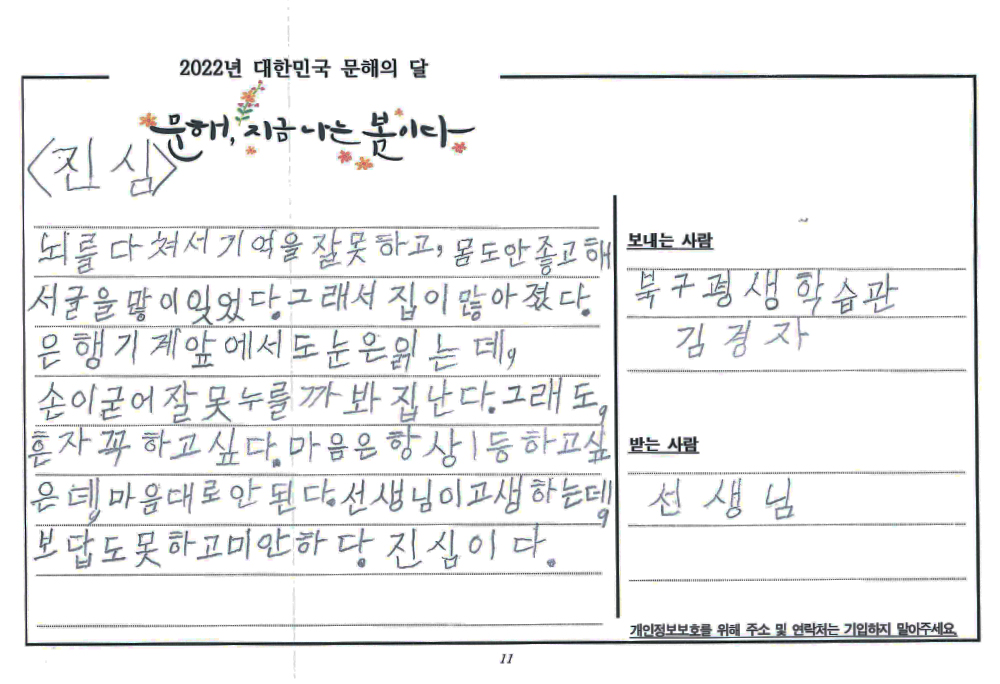 2022년 대한민국 문해의 달
문해, 지금 나는 봄이다
<진심>
뇌를 다쳐서 기억을 잘못하고, 몸도안좋고해
서글을 많이잊었다. 그래서 집이 많아졌다.
은행기계앞에서도눈은읽는데,
손이굳어잘못누를까봐집난다. 그래도,
혼자꼭하고싶다. 마음은항상1등하고싶
은데, 마음대로안된다. 선생님이고생하는데,
보답도못하고미안하다. 진심이다.
보내는 사람
북구평생학습관
김경자
받는 사람
선생님
개인정보보호를 위해 주소 및 연락처는 기입하지 말아주세요.
11